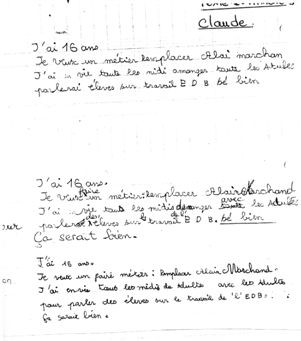 Claude.
J'ai 16 ans
Je veux un métier remplacer Alai marchan
J'ai en vie tauts les midi amanger taute les Atulte
parlerai élèves sur travail E D B bé bien
J'ai 16 ans.
Je veux faire un métier: remplacer Alain Marchand
J'ai en vie tauts les midis manger avec les Adulte
parler des élèves sur le travail de l' E D B. bé bien
Ça serait bien.
J'ai 16 ans.
Je veut un faire métier: Remplacer Alain Marchand.
J'ai envie tous les midis de adultes avec les adultes
pour parler des élèves sur le travail de "l'EDB".
Ça serait bien.